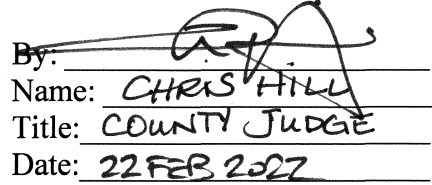 By:
Name: CHRIS HILL
Title: COUNTY JUDGE
Date: 22 FEB 2022